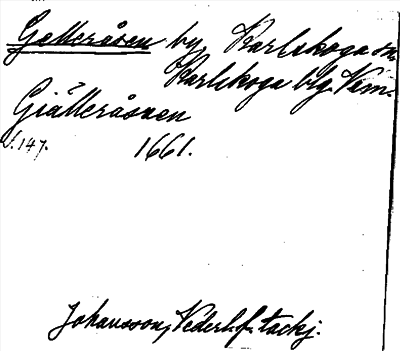 Gelleråsen by, Karlskoga sn.
Karlskoga blg. Värm.
Giälleråsen
s. 147. 1661.
Johansson, Vederl. f. tackj.